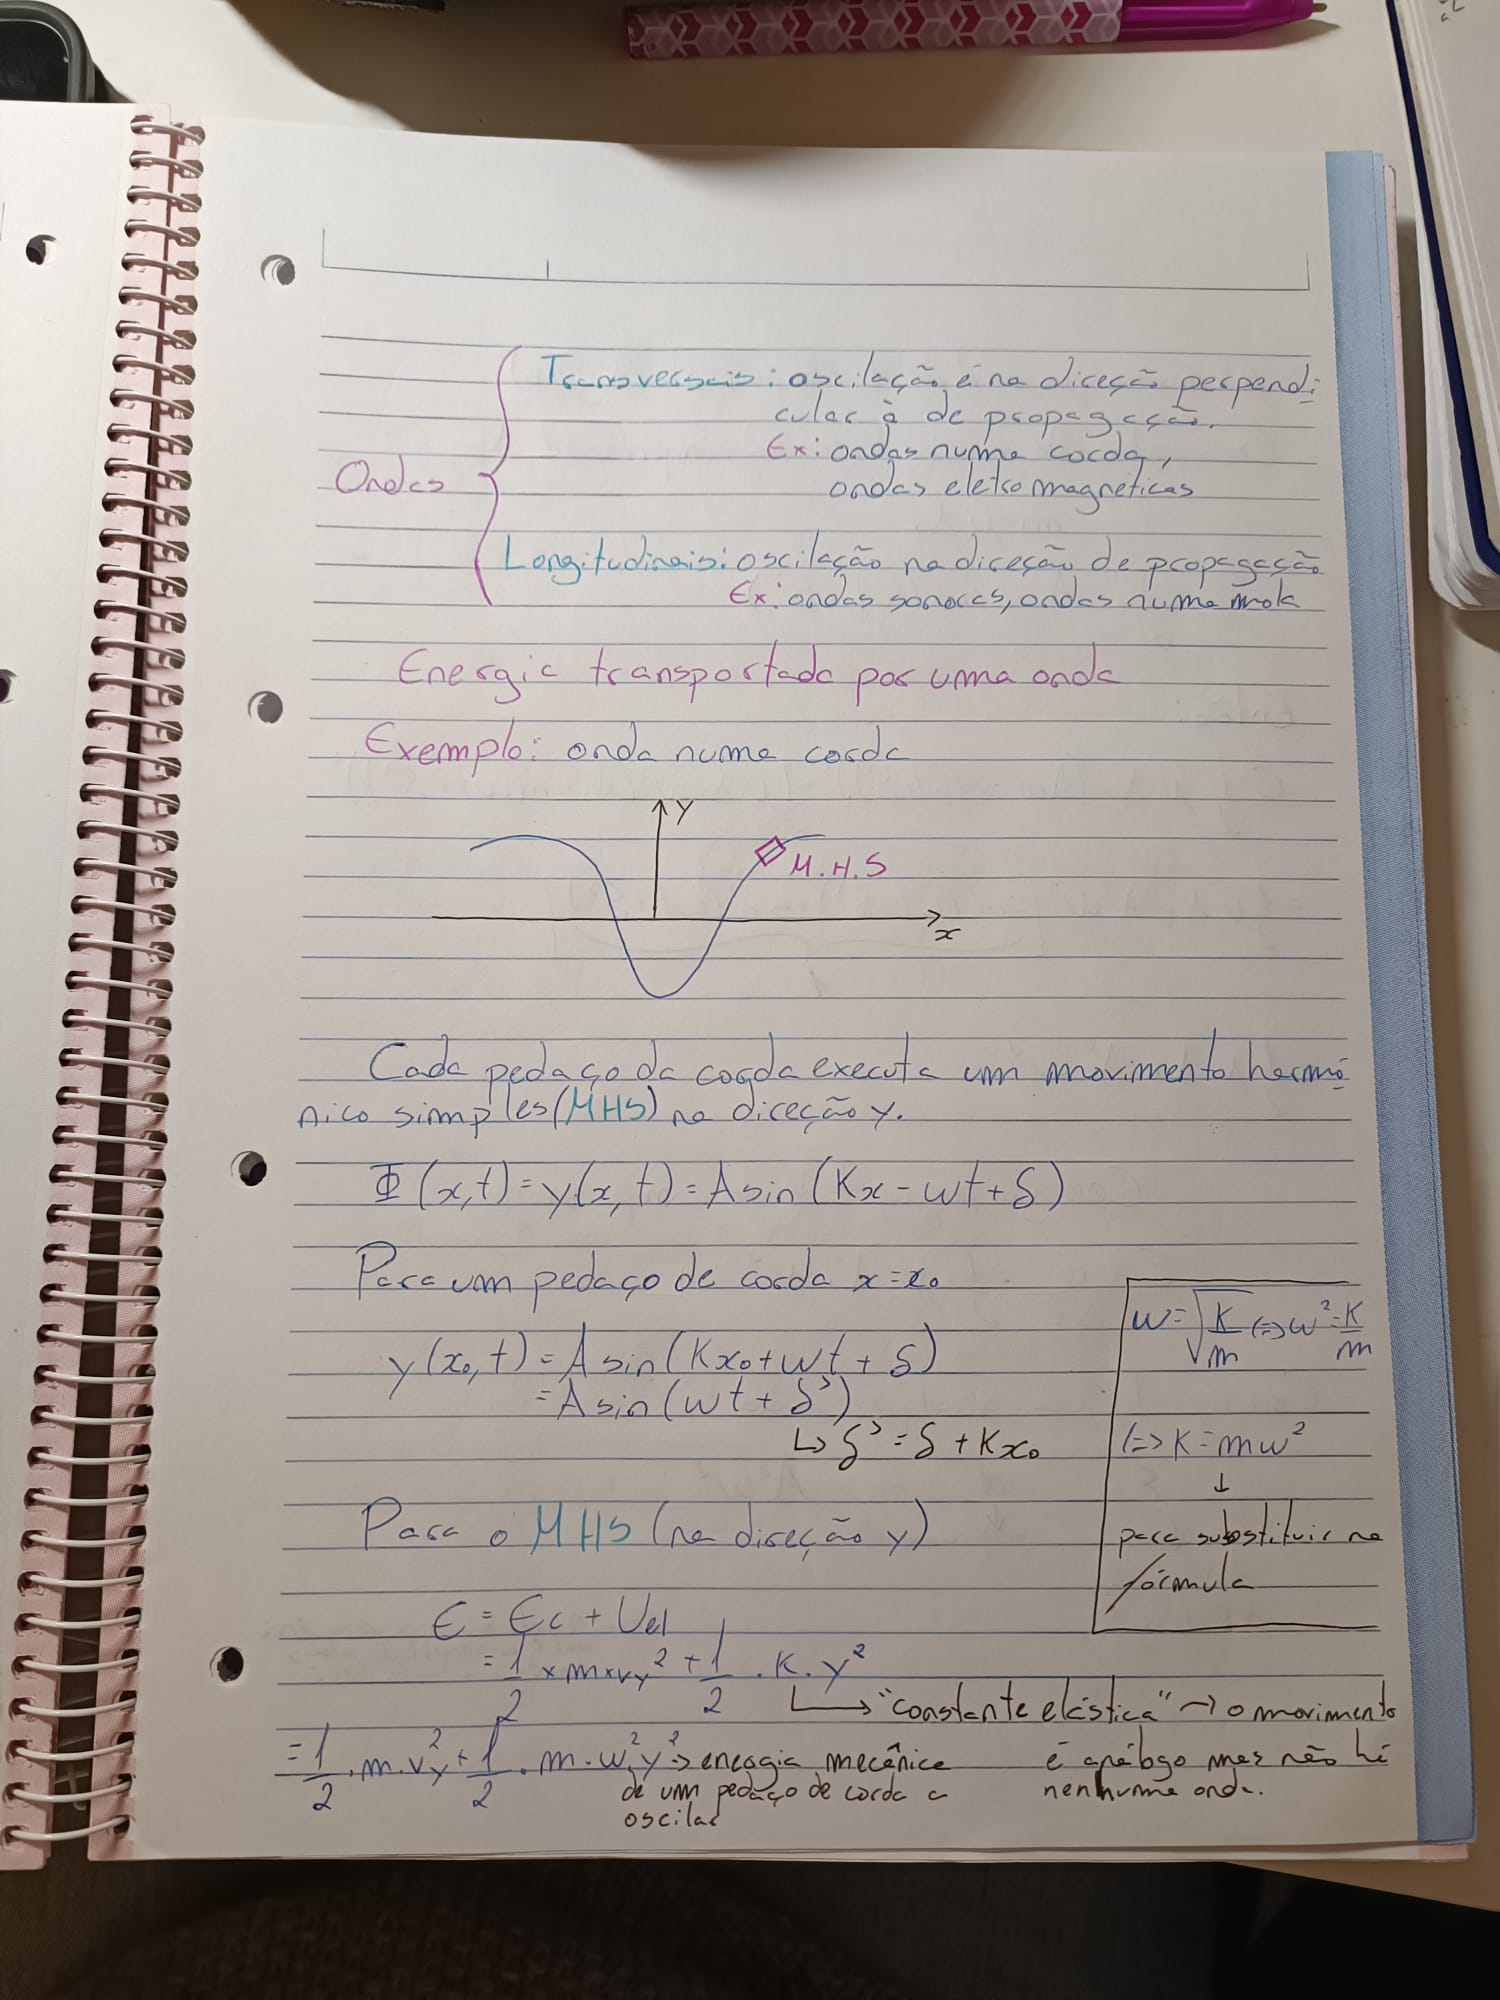 Transversais: oscilação é na direção perpendi-
cular à de propagação.
Ex: ondas numa corda,
Ondas
ondas eletromagnéticas
Longitudinais: oscilação na direção de propagação
Ex: ondas sonoras, ondas numa mola
Energia transportada por uma onda
Exemplo: onda numa corda
y
M.H.S
x
Cada pedaço da corda executa um movimento harmó-
nico simples (MHS) na direção y.
Φ(x,t) = y(x,t) = A sin(Kx - wt + δ)
Para um pedaço de corda x = x₀
y(x₀,t) = A sin(Kx₀ + wt + δ)
= A sin(wt + δ')
↳ δ' = δ + Kx₀
w = √(K/m) (=) w² = K/m
(=) K = mw²
↓
para substituir na
fórmula
Para o MHS (na direção y)
E = Ec + Uel
= 1/2 × m × vy² + 1/2 . K . y²
↳ "constante elástica" → o movimento
é análogo mas não há
nenhuma onda.
= 1/2 . m . vy² + 1/2 . m . w² . y² → energia mecânica
de um pedaço de corda a
oscilar